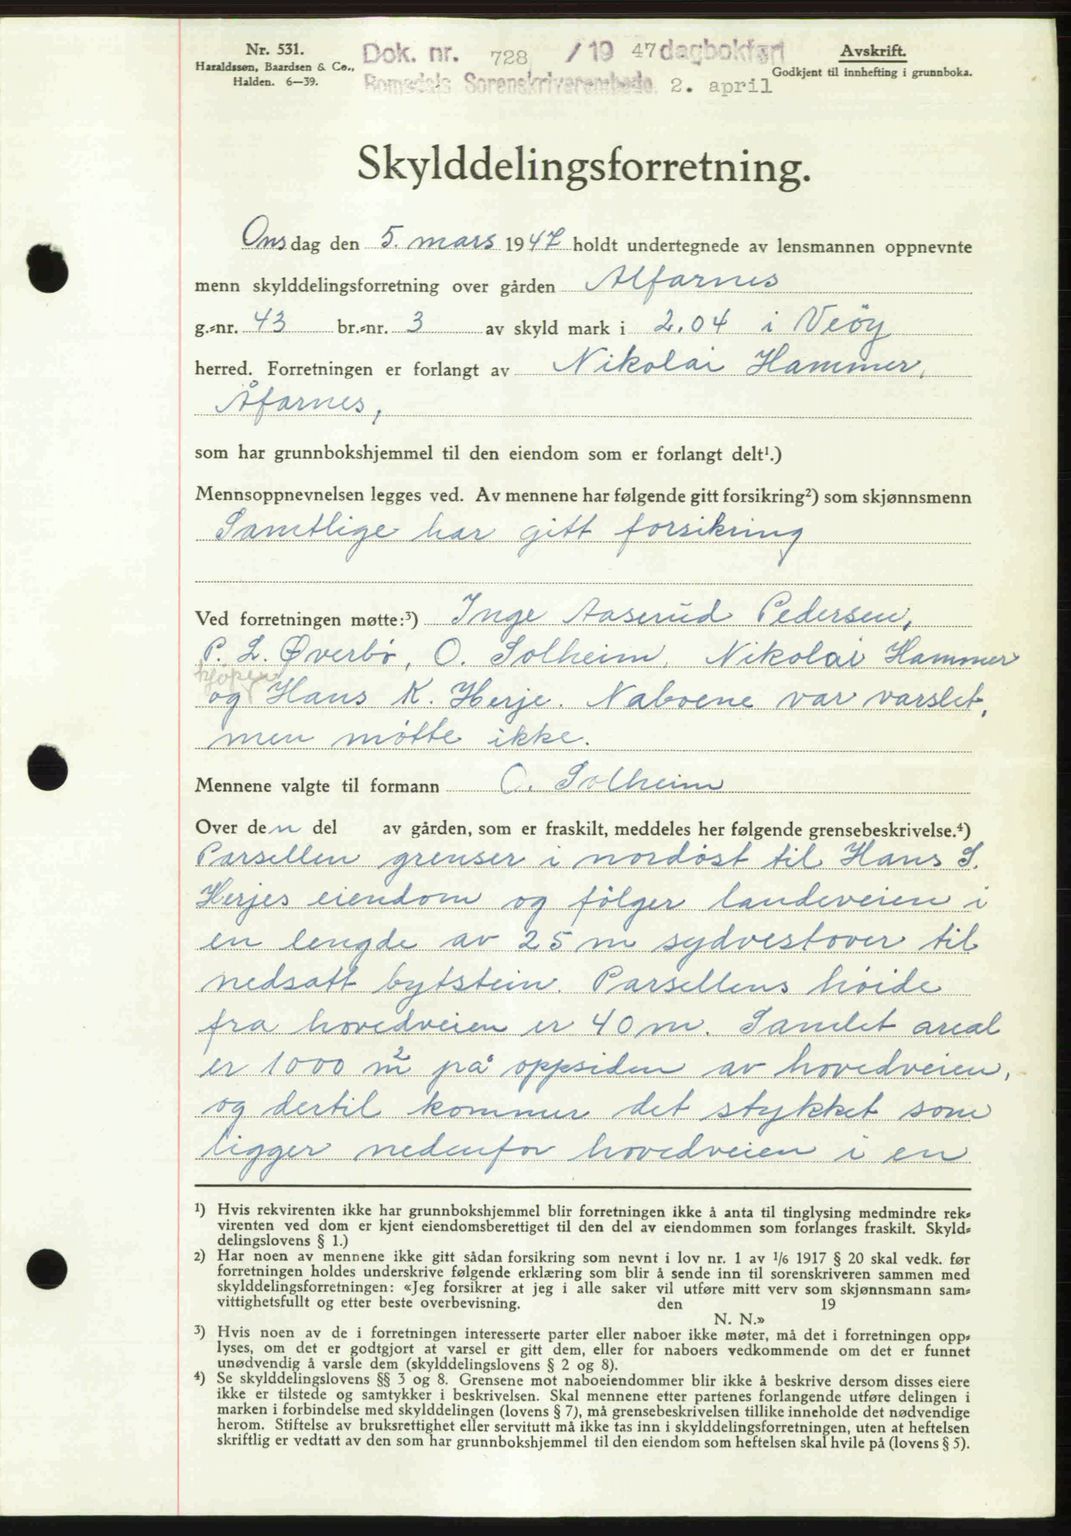 Nr. 531.
Haraldssøn, Baardsen & Co.,
Halden. 6—39.
Dok. nr. 728 / 19 47 dagbokført
Romsdals Sorenskriverembede. 2. april
Avskrift.
Godkjent til innhefting i grunnboka.
Skylddelingsforretning.
Onsdag den 5. mars 1947 holdt undertegnede av lensmannen oppnevnte
menn skylddelingsforretning over gården Alfarnes
g.-nr. 43 br.-nr. 3 av skyld mark i 2.04 i Veöy
herred. Forretningen er forlangt av Nikolai Hammer,
Åfarnes,
som har grunnbokshjemmel til den eiendom som er forlangt delt¹.)
Mennsoppnevnelsen legges ved. Av mennene har følgende gitt forsikring²) som skjønnsmenn
Samtlige har gitt forsikring
Ved forretningen møtte:³) Inge Aaserud Pedersen,
P. L. Øverbö, O. Solheim, Nikolai Hammer
kjöper
og Hans K. Herje. Naboene var varslet,
men mötte ikke.
Mennene valgte til formann O. Solheim
Over den del av gården, som er fraskilt, meddeles her følgende grensebeskrivelse.⁴)
Parsellen grenser i nordöst til Hans S.
Herjes eiendom og fölger landeveien i
en lengde av 25 m sydvestover til
nedsatt bytstein. Parsellens höide
fra hovedveien er 40 m. Samlet areal
er 1000 m² på oppsiden av hovedveien,
og dertil kommer det stykket som
ligger nedenfor hovedveien i en
¹) Hvis rekvirenten ikke har grunnbokshjemmel blir forretningen ikke å anta til tinglysing medmindre rek-
virenten ved dom er kjent eiendomsberettiget til den del av eiendommen som forlanges fraskilt. Skyld-
delingslovens § 1.)
²) Har noen av mennene ikke gitt sådan forsikring som nevnt i lov nr. 1 av ¹/6 1917 § 20 skal vedk. før
forretningen holdes underskrive følgende erklæring som blir å sende inn til sorenskriveren sammen med
skylddelingsforretningen: «Jeg forsikrer at jeg i alle saker vil utføre mitt verv som skjønnsmann sam-
vittighetsfullt og etter beste overbevisning. den 19
N. N.»
³) Hvis noen av de i forretningen interesserte parter eller naboer ikke møter, må det i forretningen opp-
lyses, om det er godtgjort at varsel er gitt dem, eller for naboers vedkommende om det er funnet
unødvendig å varsle dem (skylddelingslovens § 2 og 8).
⁴) Se skylddelingslovens §§ 3 og 8. Grensene mot naboeiendommer blir ikke å beskrive dersom disses eiere
ikke er tilstede og samtykker i beskrivelsen. Skal mennene etter partenes forlangende utføre delingen i
marken i forbindelse med skylddelingen (lovens § 7), må grensebeskrivelsen tillike inneholde det nødvendige
herom. Stiftelse av bruksrettighet eller servitutt må ikke tas inn i skylddelingsforretningen, uten at heftelsen
skriftlig er vedtatt av den som har grunnbokshjemmel til den eiendom som heftelsen skal hvile på (lovens § 5).